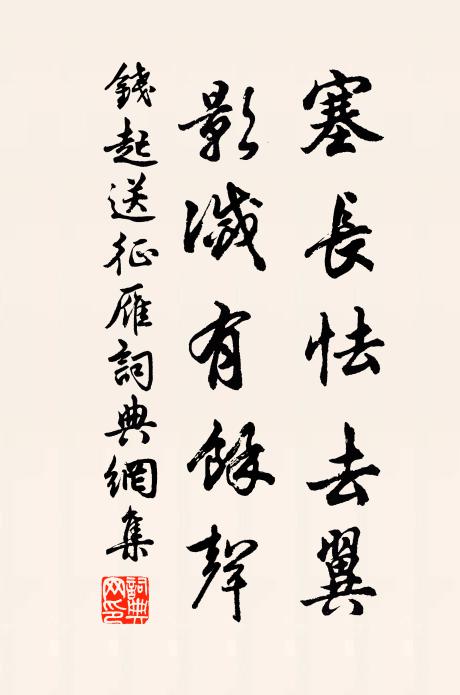 塞長怯去翼
影滅有餘聲
錢起送征雁詞典網集
詞典
网印